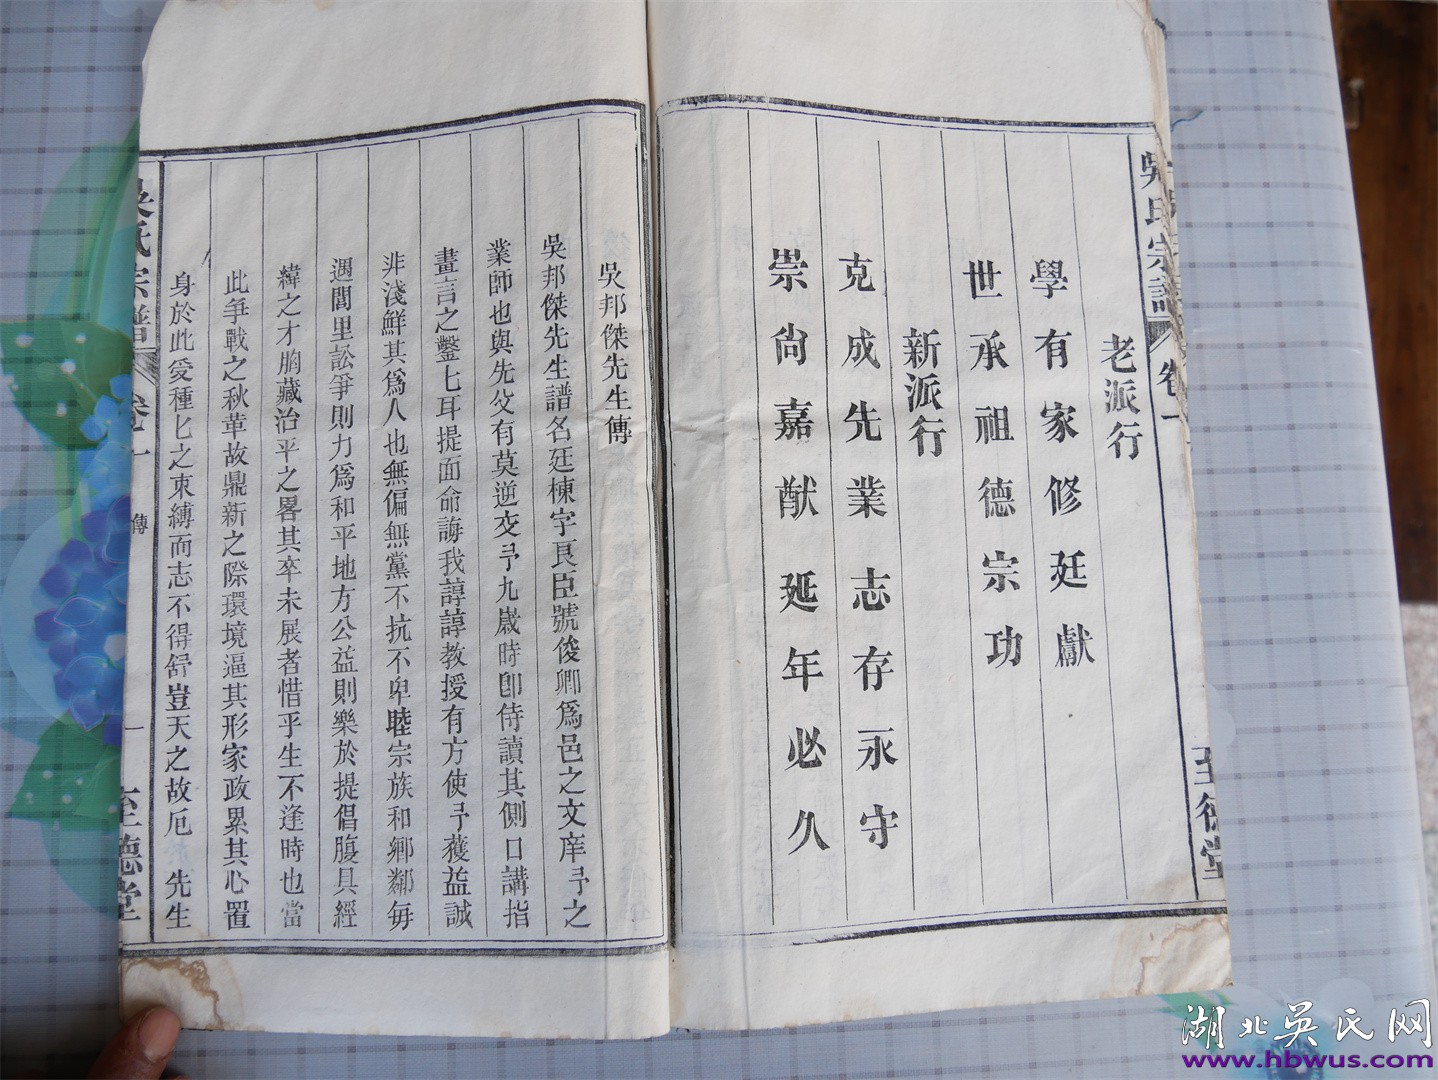 吳氏宗譜 卷一 至德堂
老派行
學有家修廷獻
世承祖德宗功
新派行
克成先業志存永守
崇尚嘉猷延年必久
吳邦傑先生傳
吳邦傑先生譜名廷棟字良臣號俊卿為邑之文庠予之
業師也與先父有莫逆交予九歲時卽侍讀其側口講指
畫言之鑿七耳提面命誨我諄諄教授有方使予獲益誠
非淺鮮其為人也無偏無黨不抗不卑睦宗族和鄉鄰每
遇閭里訟爭則力為和平地方公益則樂於提倡腹具經
緯之才胸藏治平之畧其卒未展者惜乎生不逢時也當
此爭戰之秋革故鼎新之際環境逼其形家政累其心置
身於此爰種匕之束縛而志不得舒豈天之故厄於先生
吳氏宗譜 卷一 傳 一 至德堂
湖北吴氏网
www.hbwus.com